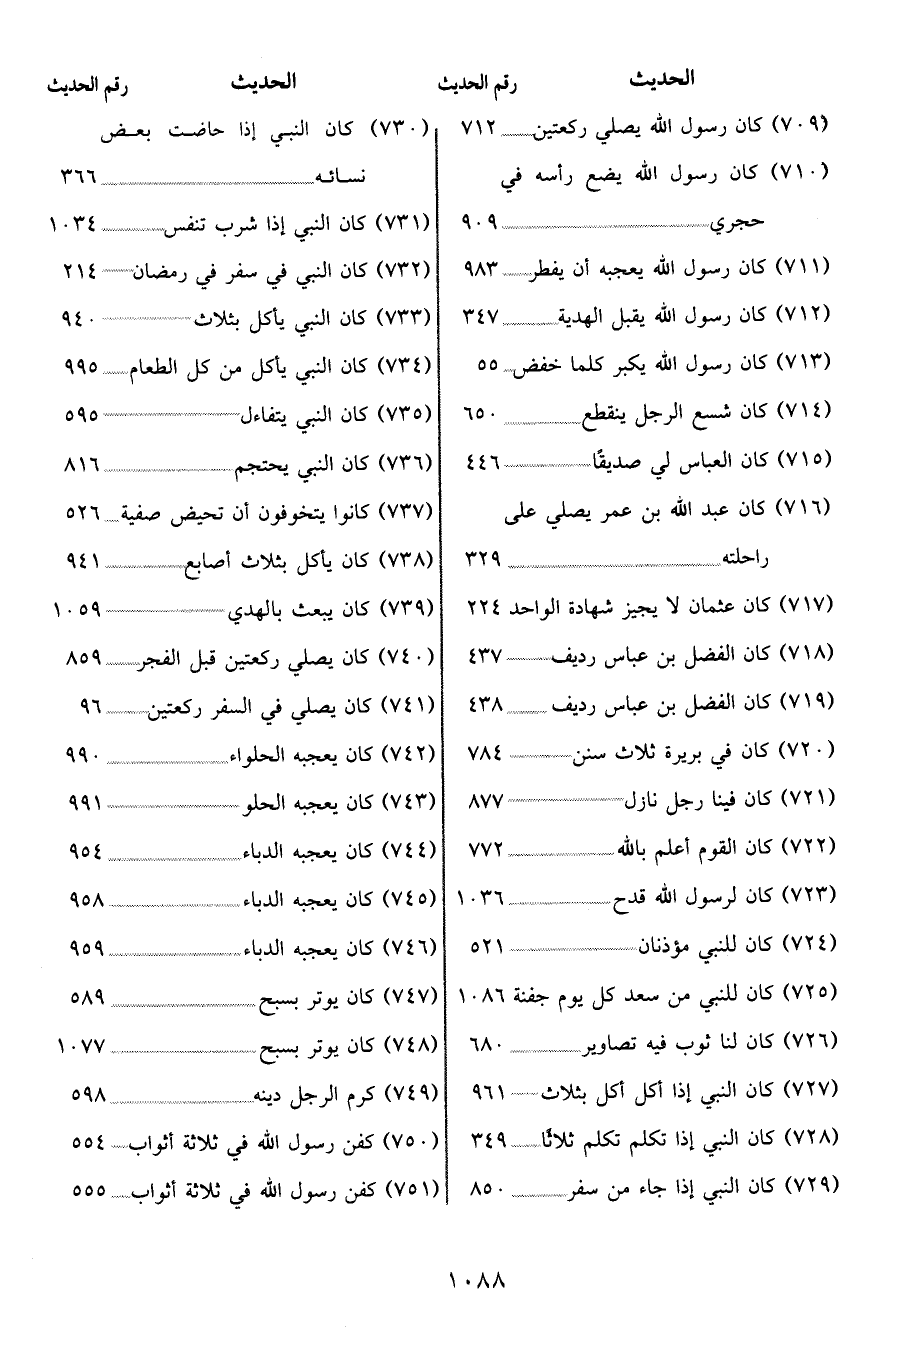 الحديث رقم الحديث
(٧٠٩) كان رسول الله يصلي ركعتين ٧١٢
(٧١٠) كان رسول الله يضع رأسه في
حجري ٩٠٩
(٧١١) كان رسول الله يعجبه أن يفطر ٩٨٣
(٧١٢) كان رسول الله يقبل الهدية ٣٤٧
(٧١٣) كان رسول الله يكبر كلما خفض ٥٥
(٧١٤) كان شسع الرجل ينقطع ٦٥٠
(٧١٥) كان العباس لي صديقًا ٤٤٦
(٧١٦) كان عبد الله بن عمر يصلي على
راحلته ٣٢٩
(٧١٧) كان عثمان لا يجيز شهادة الواحد ٢٢٤
(٧١٨) كان الفضل بن عباس رديف ٤٣٧
(٧١٩) كان الفضل بن عباس رديف ٤٣٨
(٧٢٠) كان في بريرة ثلاث سنن ٧٨٤
(٧٢١) كان فينا رجل نازل ٨٧٧
(٧٢٢) كان القوم أعلم بالله ٧٧٢
(٧٢٣) كان لرسول الله قدح ١٠٣٦
(٧٢٤) كان للنبي مؤذنان ٥٢١
(٧٢٥) كان للنبي من سعد كل يوم جفنة ١٠٨٦
(٧٢٦) كان لنا ثوب فيه تصاوير ٦٨٠
(٧٢٧) كان النبي إذا أكل أكل بثلاث ٩٦١
(٧٢٨) كان النبي إذا تكلم تكلم ثلاثًا ٣٤٩
(٧٢٩) كان النبي إذا جاء من سفر ٨٥٠
الحديث رقم الحديث
(٧٣٠) كان النبي إذا حاضت بعض
نسائه ٣٦٦
(٧٣١) كان النبي إذا شرب تنفس ١٠٣٤
(٧٣٢) كان النبي في سفر في رمضان ٢١٤
(٧٣٣) كان النبي يأكل بثلاث ٩٤٠
(٧٣٤) كان النبي يأكل من كل الطعام ٩٩٥
(٧٣٥) كان النبي يتفاءل ٥٩٥
(٧٣٦) كان النبي يحتجم ٨١٦
(٧٣٧) كانوا يتخوفون أن تحيض صفية ٥٢٦
(٧٣٨) كان يأكل بثلاث أصابع ٩٤١
(٧٣٩) كان يبعث بالهدي ١٠٥٩
(٧٤٠) كان يصلي ركعتين قبل الفجر ٨٥٩
(٧٤١) كان يصلي في السفر ركعتين ٩٦
(٧٤٢) كان يعجبه الحلواء ٩٩٠
(٧٤٣) كان يعجبه الحلو ٩٩١
(٧٤٤) كان يعجبه الدباء ٩٥٤
(٧٤٥) كان يعجبه الدباء ٩٥٨
(٧٤٦) كان يعجبه الدباء ٩٥٩
(٧٤٧) كان يوتر بسبح ٥٨٩
(٧٤٨) كان يوتر بسبح ١٠٧٧
(٧٤٩) كرم الرجل دينه ٥٩٨
(٧٥٠) كفن رسول الله في ثلاثة أثواب ٥٥٤
(٧٥١) كفن رسول الله في ثلاثة أثواب ٥٥٥
١٠٨٨